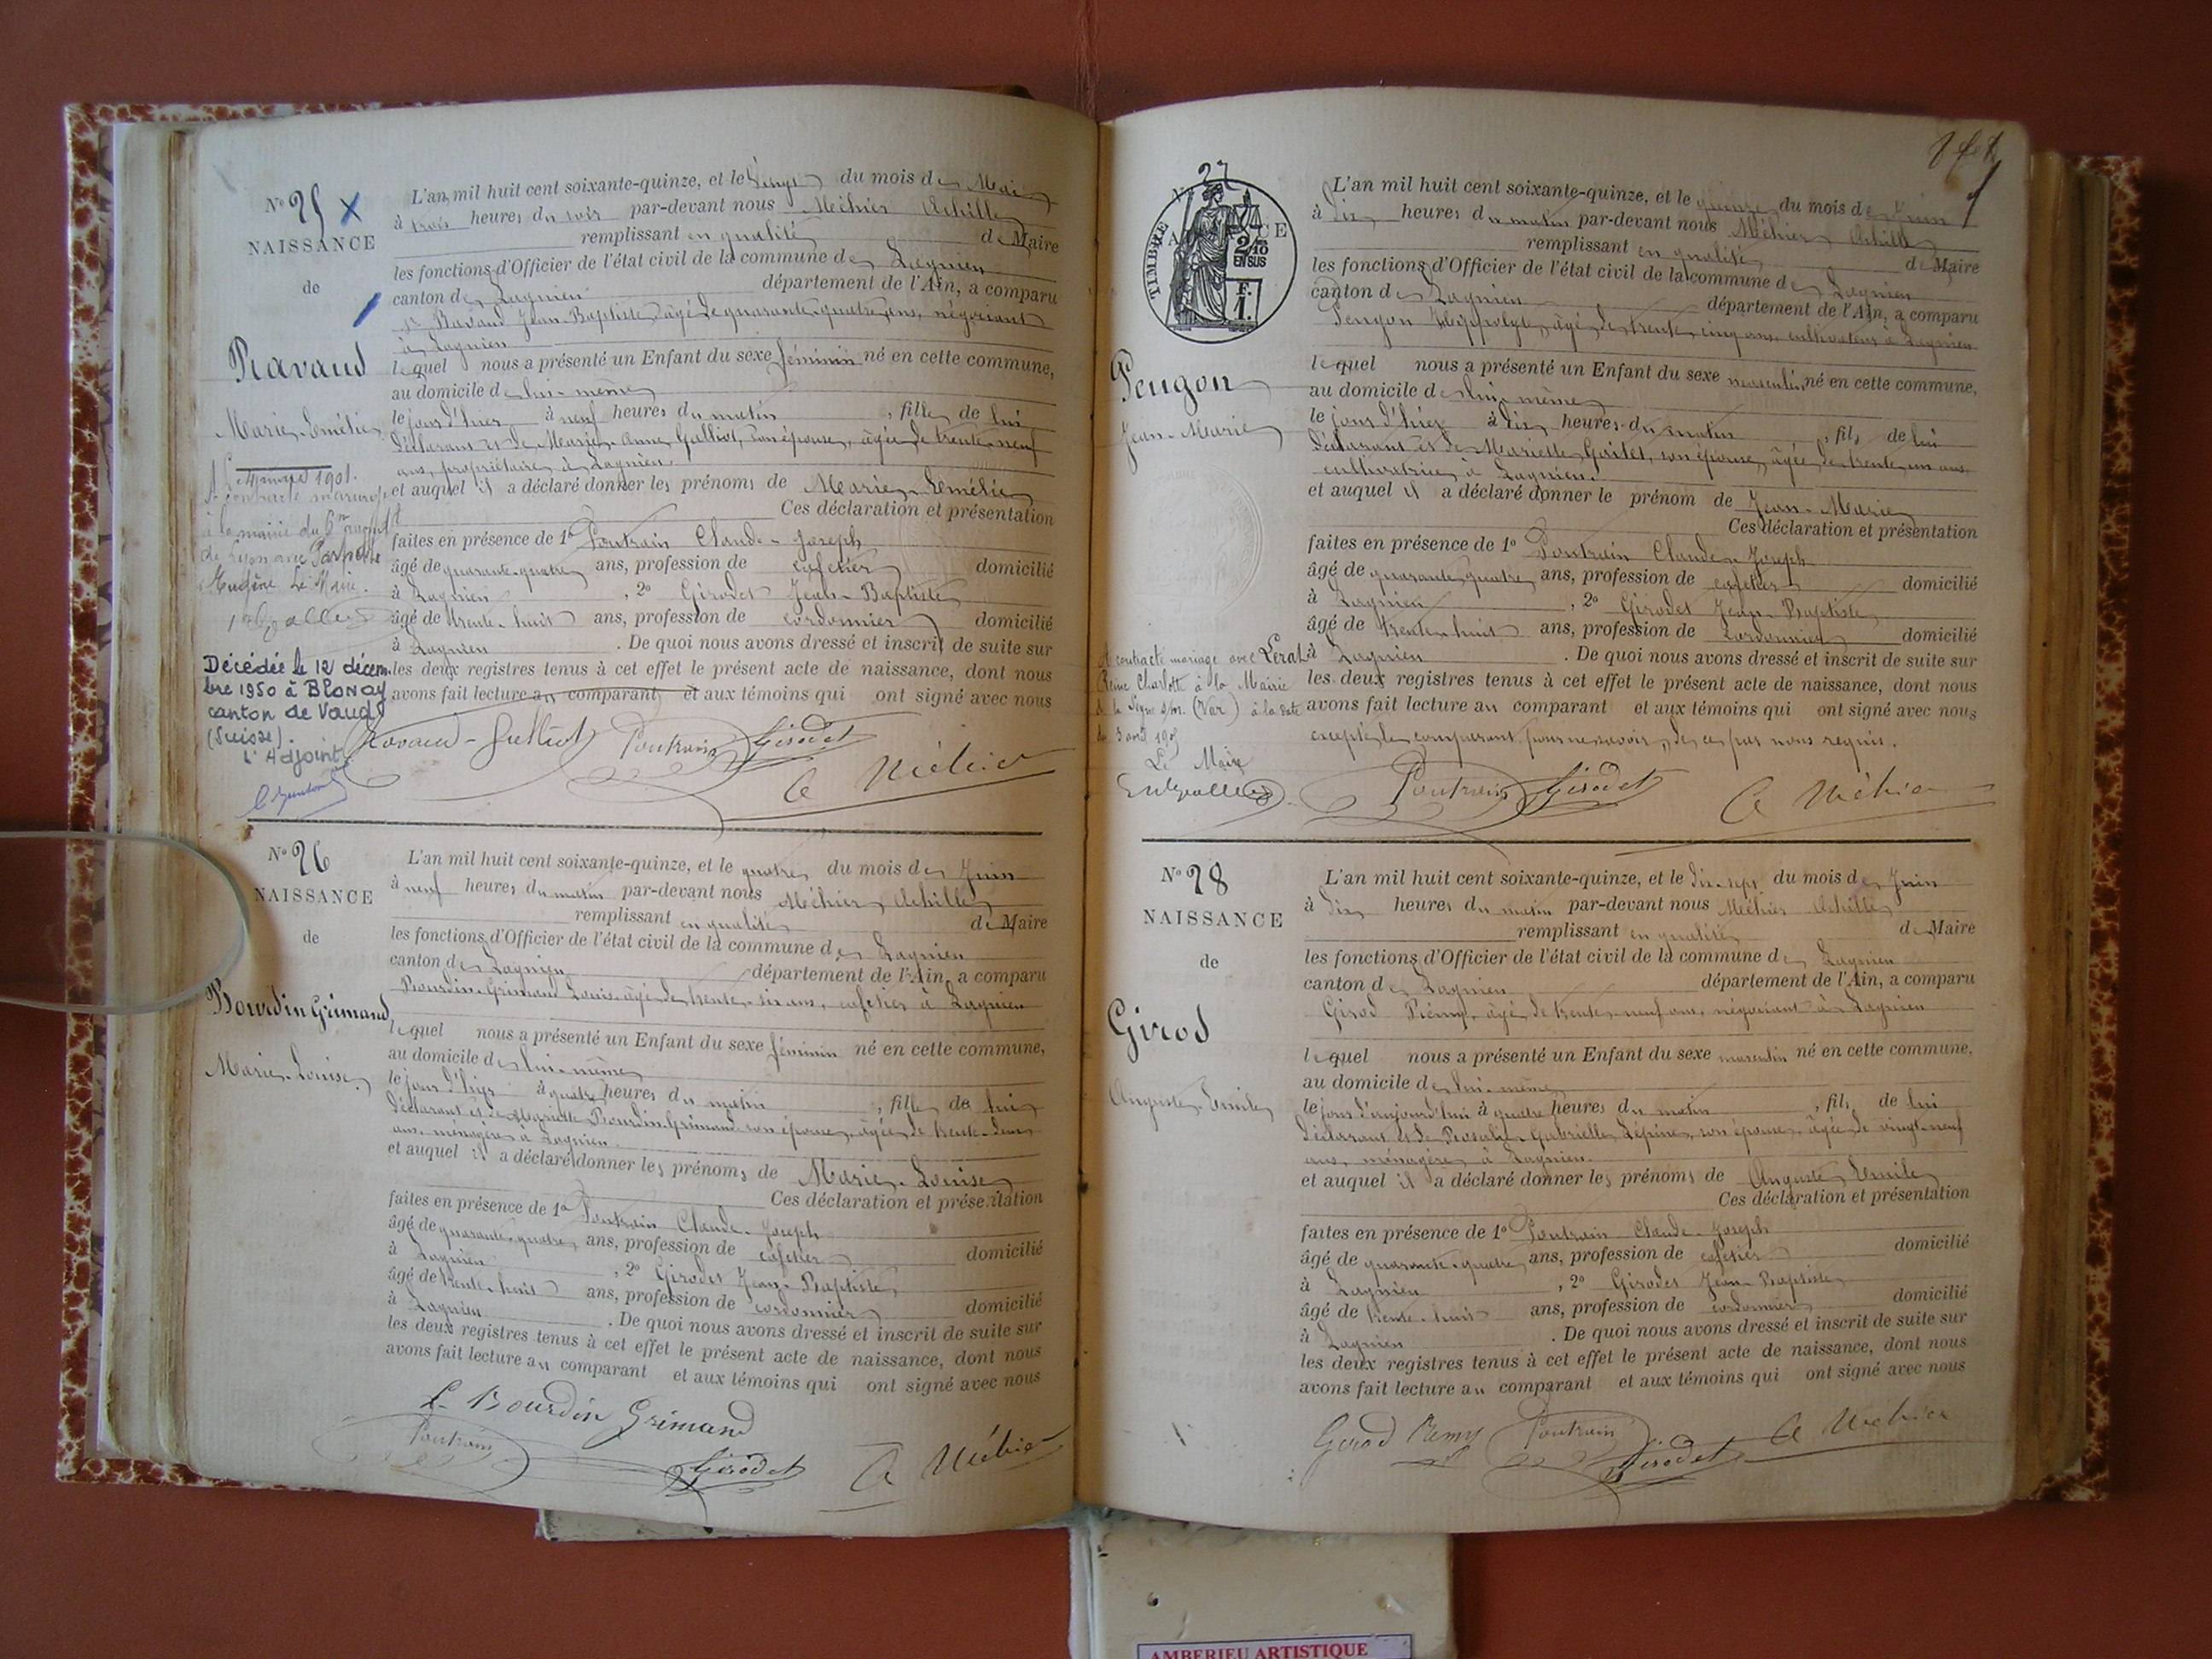 N° 25 X
NAISSANCE
de
Ravaud
Marie-Emélie
L'an mil huit cent soixante-quinze, et le vingt du mois de Mai
à trois heures du soir par-devant nous Méhier Achille
remplissant en qualité de Maire
les fonctions d'Officier de l'état civil de la commune de Lagnieu
canton de Lagnieu département de l'Ain, a comparu
Sr Ravaud Jean-Baptiste, âgé de quarante-quatre ans, négociant
à Lagnieu
lequel nous a présenté un Enfant du sexe féminin né en cette commune,
au domicile de lui-même
le jour d'hier à neuf heures du matin, fille de lui
déclarant et de Marie-Anne Galliot, son épouse, âgée de trente-neuf
ans, propriétaire à Lagnieu.
et auquel il a déclaré donner les prénoms de Marie-Emélie
Ces déclaration et présentation
faites en présence de 1° Poutrain Claude-Joseph
âgé de quarante-quatre ans, profession de cafetier domicilié
à Lagnieu, 2° Girodet Jean-Baptiste
âgé de trente-huit ans, profession de cordonnier domicilié
à Lagnieu. De quoi nous avons dressé et inscrit de suite sur
les deux registres tenus à cet effet le présent acte de naissance, dont nous
avons fait lecture au comparant et aux témoins qui ont signé avec nous
Ravaud-Galliot Poutrain Girodet
A Méhier
1901.
A contracté mariage
à la mairie du 6me arrondt
de Lyon avec
Eugène Le Maire.
Décédée le 12 décem-
bre 1950 à Blonay
canton de Vaud
(Suisse).
L'Adjoint
N° 26
NAISSANCE
de
Bourdin Grimaud
Marie-Louise
L'an mil huit cent soixante-quinze, et le quatre du mois de Juin
à neuf heures du matin par-devant nous Méhier Achille
remplissant en qualité de Maire
les fonctions d'Officier de l'état civil de la commune de Lagnieu
canton de Lagnieu département de l'Ain, a comparu
Bourdin-Grimaud Louis, âgé de trente-six ans, cafetier à Lagnieu
lequel nous a présenté un Enfant du sexe féminin né en cette commune,
au domicile de lui-même
le jour d'hier à quatre heures du matin, fille de lui
déclarant et de Mariette Bourdin-Grimaud son épouse, âgée de trente-deux
ans, ménagère à Lagnieu.
et auquel il a déclaré donner les prénoms de Marie-Louise
Ces déclaration et présentation
faites en présence de 1° Poutrain Claude-Joseph
âgé de quarante-quatre ans, profession de cafetier domicilié
à Lagnieu, 2° Girodet Jean-Baptiste
âgé de trente-huit ans, profession de cordonnier domicilié
à Lagnieu. De quoi nous avons dressé et inscrit de suite sur
les deux registres tenus à cet effet le présent acte de naissance, dont nous
avons fait lecture au comparant et aux témoins qui ont signé avec nous
L. Bourdin Grimaud
Poutrain Girodet A Méhier
N° 27
TIMBRE
2/10
EN SUS
F.
1.
Peugon
Jean-Marie
L'an mil huit cent soixante-quinze, et le quinze du mois de Juin
à dix heures du matin par-devant nous Méhier Achille
remplissant en qualité de Maire
les fonctions d'Officier de l'état civil de la commune de Lagnieu
canton de Lagnieu département de l'Ain, a comparu
Peugon Hippolyte, âgé de trente-cinq ans cultivateur à Lagnieu
lequel nous a présenté un Enfant du sexe masculin, né en cette commune,
au domicile de lui-même
le jour d'hier à dix heures du matin, fils de lui
déclarant et de Mariette son épouse, âgée de trente-un ans
cultivatrice à Lagnieu.
et auquel il a déclaré donner le prénom de Jean-Marie
Ces déclaration et présentation
faites en présence de 1° Poutrain Claude-Joseph
âgé de quarante-quatre ans, profession de cafetier domicilié
à Lagnieu, 2° Girodet Jean-Baptiste
âgé de trente-huit ans, profession de cordonnier domicilié
à Lagnieu. De quoi nous avons dressé et inscrit de suite sur
les deux registres tenus à cet effet le présent acte de naissance, dont nous
avons fait lecture au comparant et aux témoins qui ont signé avec nous
excepté le comparant pour ne savoir, de ce par nous requis.
Poutrain Girodet A Méhier
A contracté mariage avec Lerat
Reine Charlotte à la Mairie
de la Seyne s/m. (Var) à la date
du 3 avril
Le Maire
N° 28
NAISSANCE
de
Girod
Auguste-Emile
L'an mil huit cent soixante-quinze, et le dix-sept du mois de Juin
à dix heures du matin par-devant nous Méhier Achille
remplissant en qualité de Maire
les fonctions d'Officier de l'état civil de la commune de Lagnieu
canton de Lagnieu département de l'Ain, a comparu
Girod Rémy, âgé de trente-neuf ans, négociant à Lagnieu
lequel nous a présenté un Enfant du sexe masculin né en cette commune,
au domicile de lui-même
le jour d'aujourd'hui à quatre heures du matin, fils de lui
déclarant et de Rosalie-Gabrielle Lépine, son épouse, âgée de vingt-neuf
ans, ménagère à Lagnieu.
et auquel il a déclaré donner les prénoms de Auguste Emile
Ces déclaration et présentation
faites en présence de 1° Poutrain Claude-Joseph
âgé de quarante-quatre ans, profession de cafetier domicilié
à Lagnieu, 2° Girodet Jean-Baptiste
âgé de trente-huit ans, profession de cordonnier domicilié
à Lagnieu. De quoi nous avons dressé et inscrit de suite sur
les deux registres tenus à cet effet le présent acte de naissance, dont nous
avons fait lecture au comparant et aux témoins qui ont signé avec nous
Girod Remy Poutrain Girodet A Méhier
AMBERIEU ARTISTIQUE